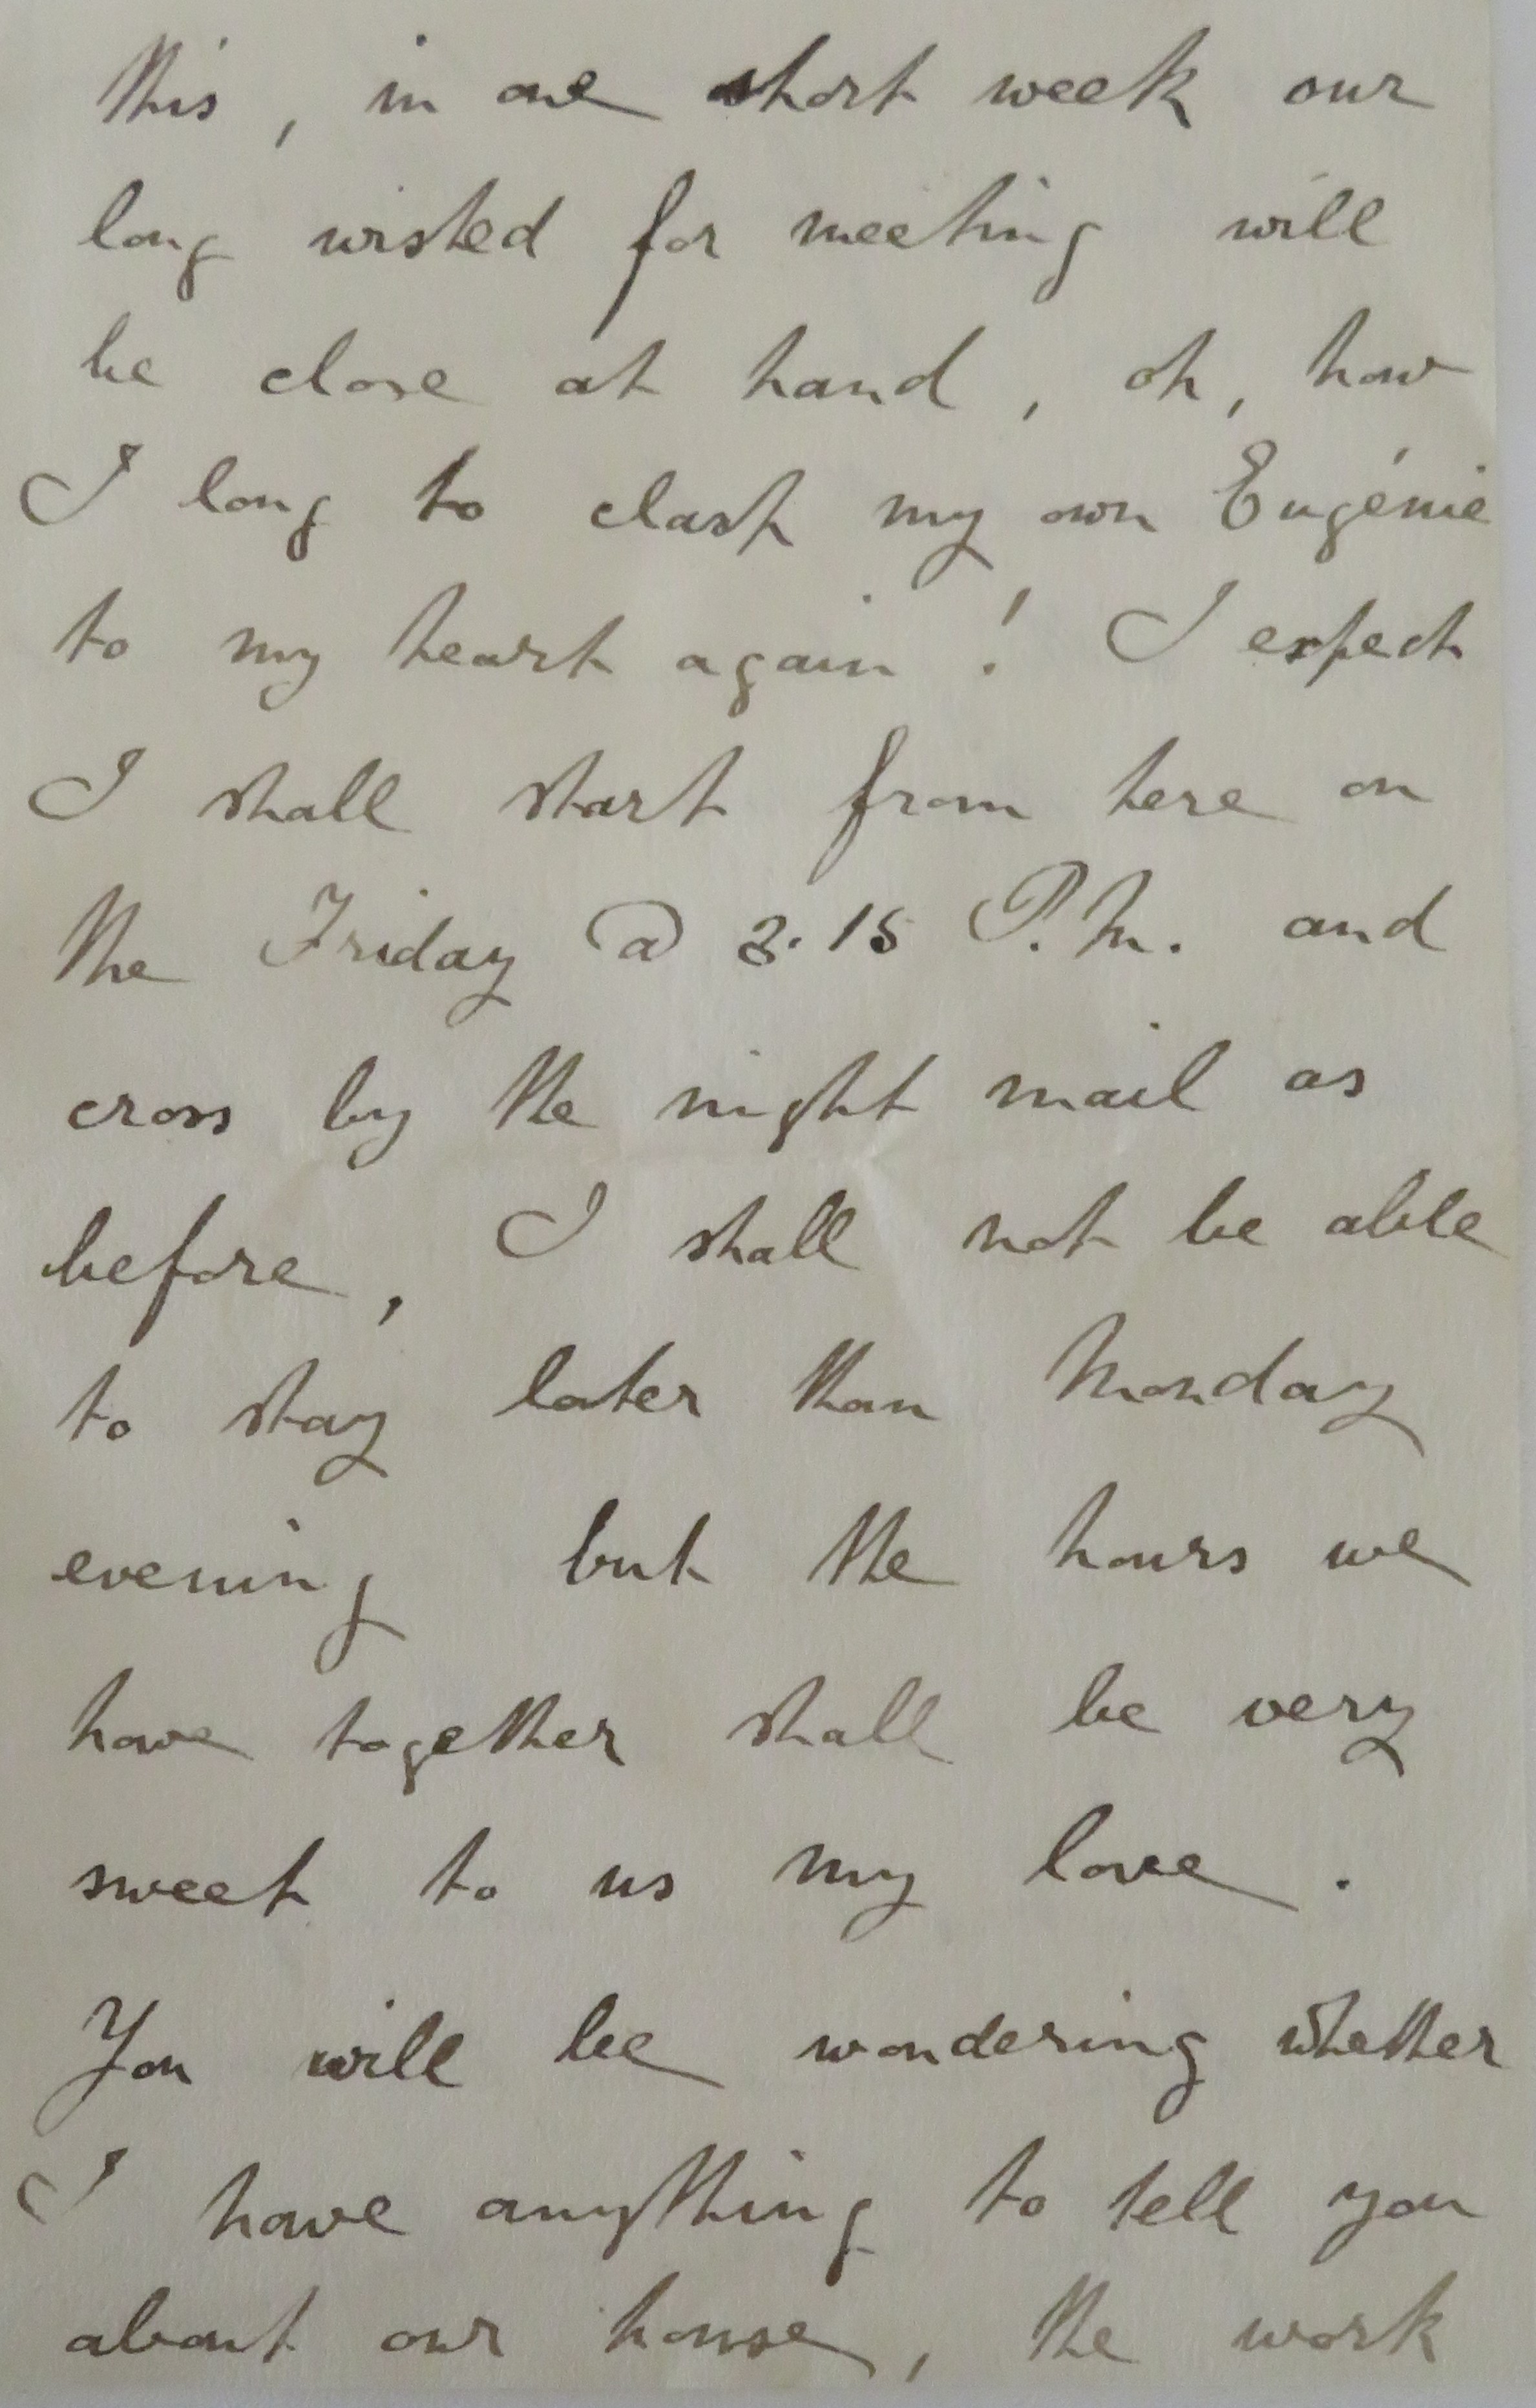 this, in one short week our
long wished for meeting will
be close at hand, oh, how
I long to clasp my own Eugénie
to my heart again! I expect
I shall start from here on
the Friday @ 3.15 P.M. and
cross by the night mail as
before, I shall not be able
to stay later than Monday
evening but the hours we
have together shall be very
sweet to us my love.
You will be wondering whether
I have anything to tell you
about our house, the work